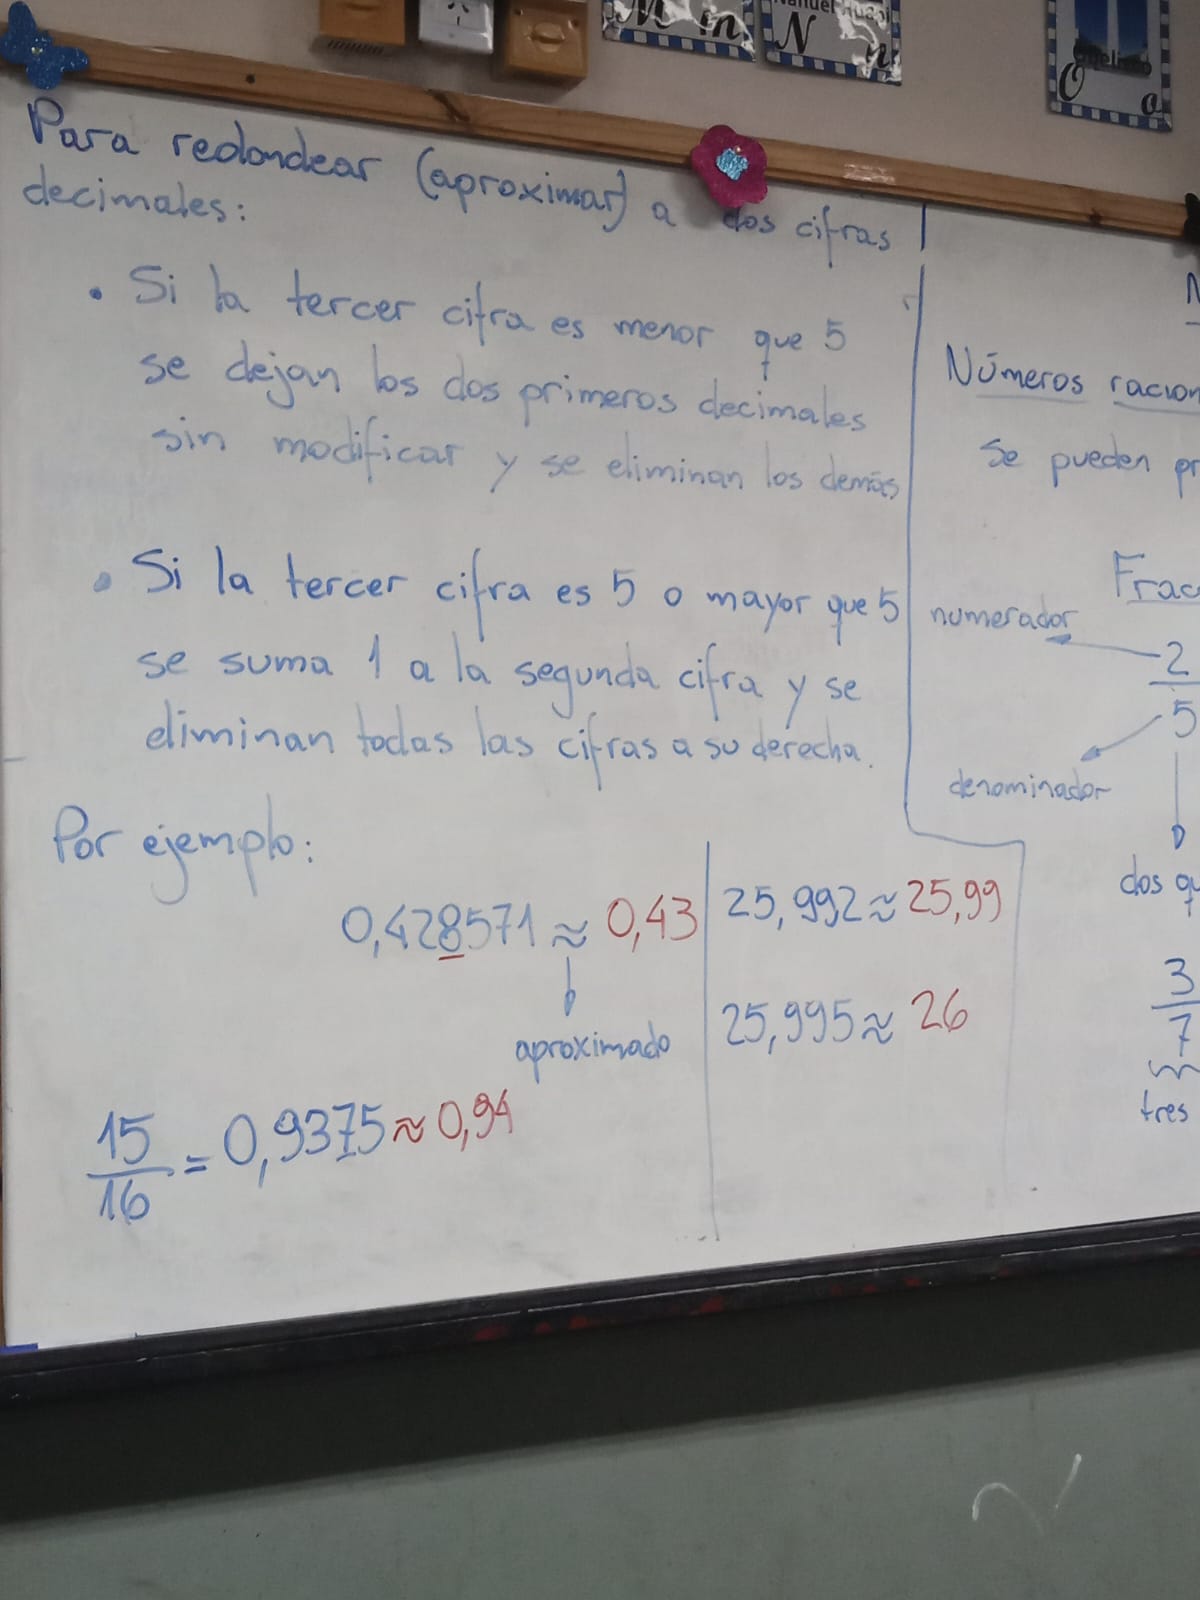 M m
Manuel
N n
Obelisco
O o
Para redondear (aproximar) a dos cifras
decimales:
• Si la tercer cifra es menor que 5
se dejan los dos primeros decimales
sin modificar y se eliminan los demás
• Si la tercer cifra es 5 o mayor que 5
se suma 1 a la segunda cifra y se
eliminan todas las cifras a su derecha.
Por ejemplo:
0,428571 ≈ 0,43
aproximado
15/16 = 0,9375 ≈ 0,94
25,992 ≈ 25,99
25,995 ≈ 26
N
Números racion
Se pueden pr
Frac
numerador
2/5
denominador
dos qu
3/7
tres